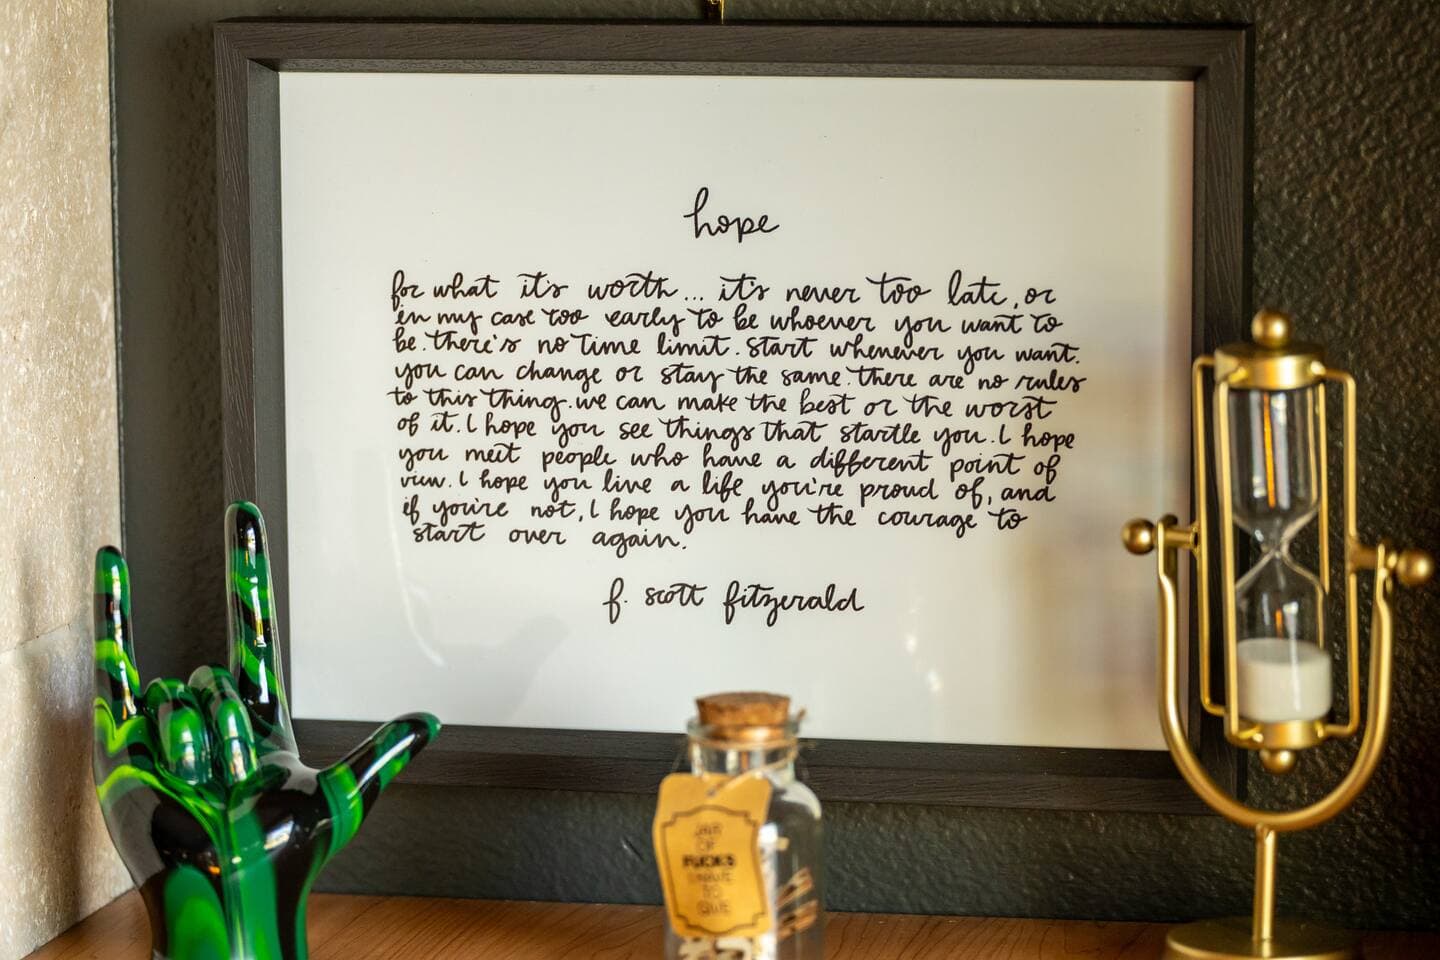 hope
for what it's worth... it's never too late, or
in my case too early to be whoever you want to
be. there's no time limit. start whenever you want.
you can change or stay the same. there are no rules
to this thing. we can make the best or the worst
of it. I hope you see things that startle you. I hope
you meet people who have a different point of
view. I hope you live a life you're proud of, and
if you're not, I hope you have the courage to
start over again.
f. scott fitzgerald
JAR
OF
FUCKS
I HAVE
TO
GIVE